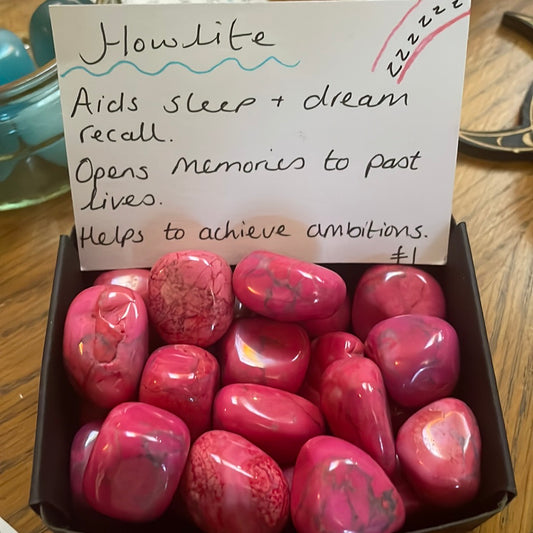 Howlite
zzzzzzz
Aids sleep + dream
recall.
Opens memories to past
lives.
Helps to achieve ambitions.
£1